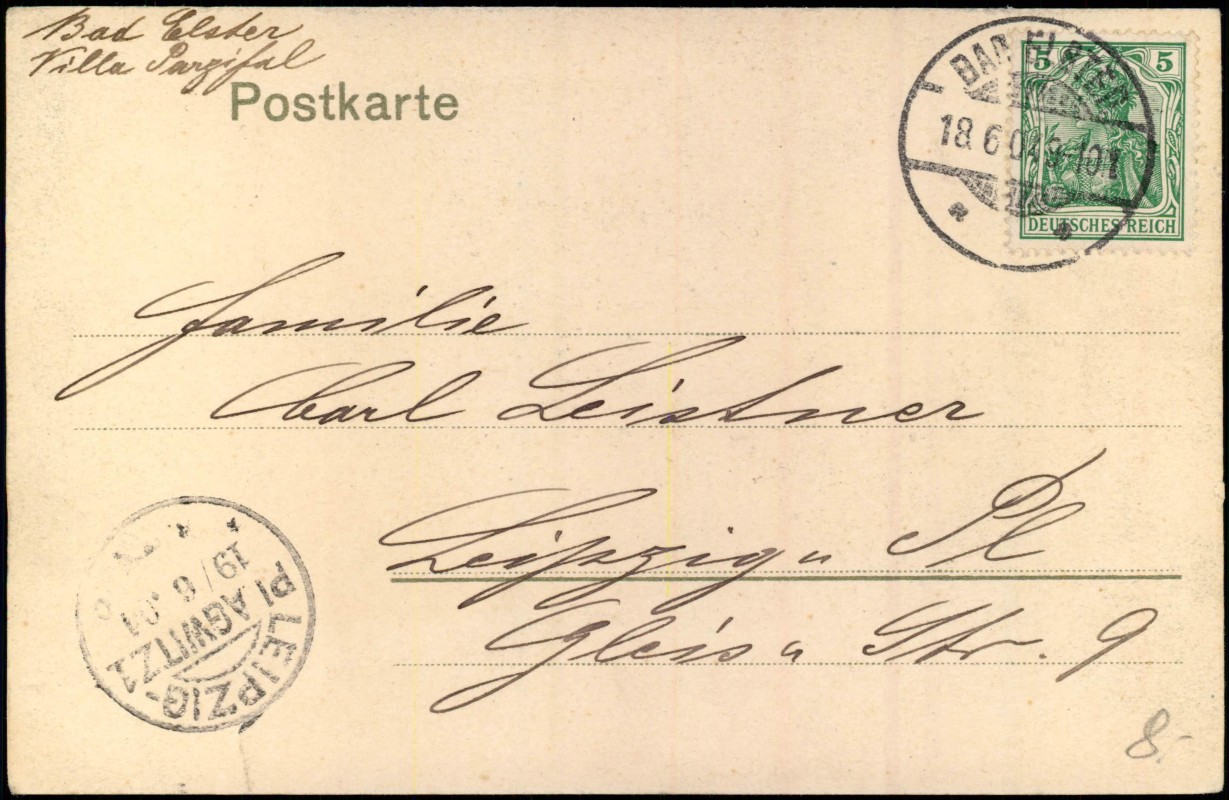 Bad Elster
Villa Parzifal
Postkarte
BAD ELSTER
18.6.04.9-10V.
5 5
DEUTSCHES REICH
Familie
Carl Leistner
Leipzig Pl
Str. 9
LEIPZIG-
PLAGWITZ 1
19/6.04
8.-